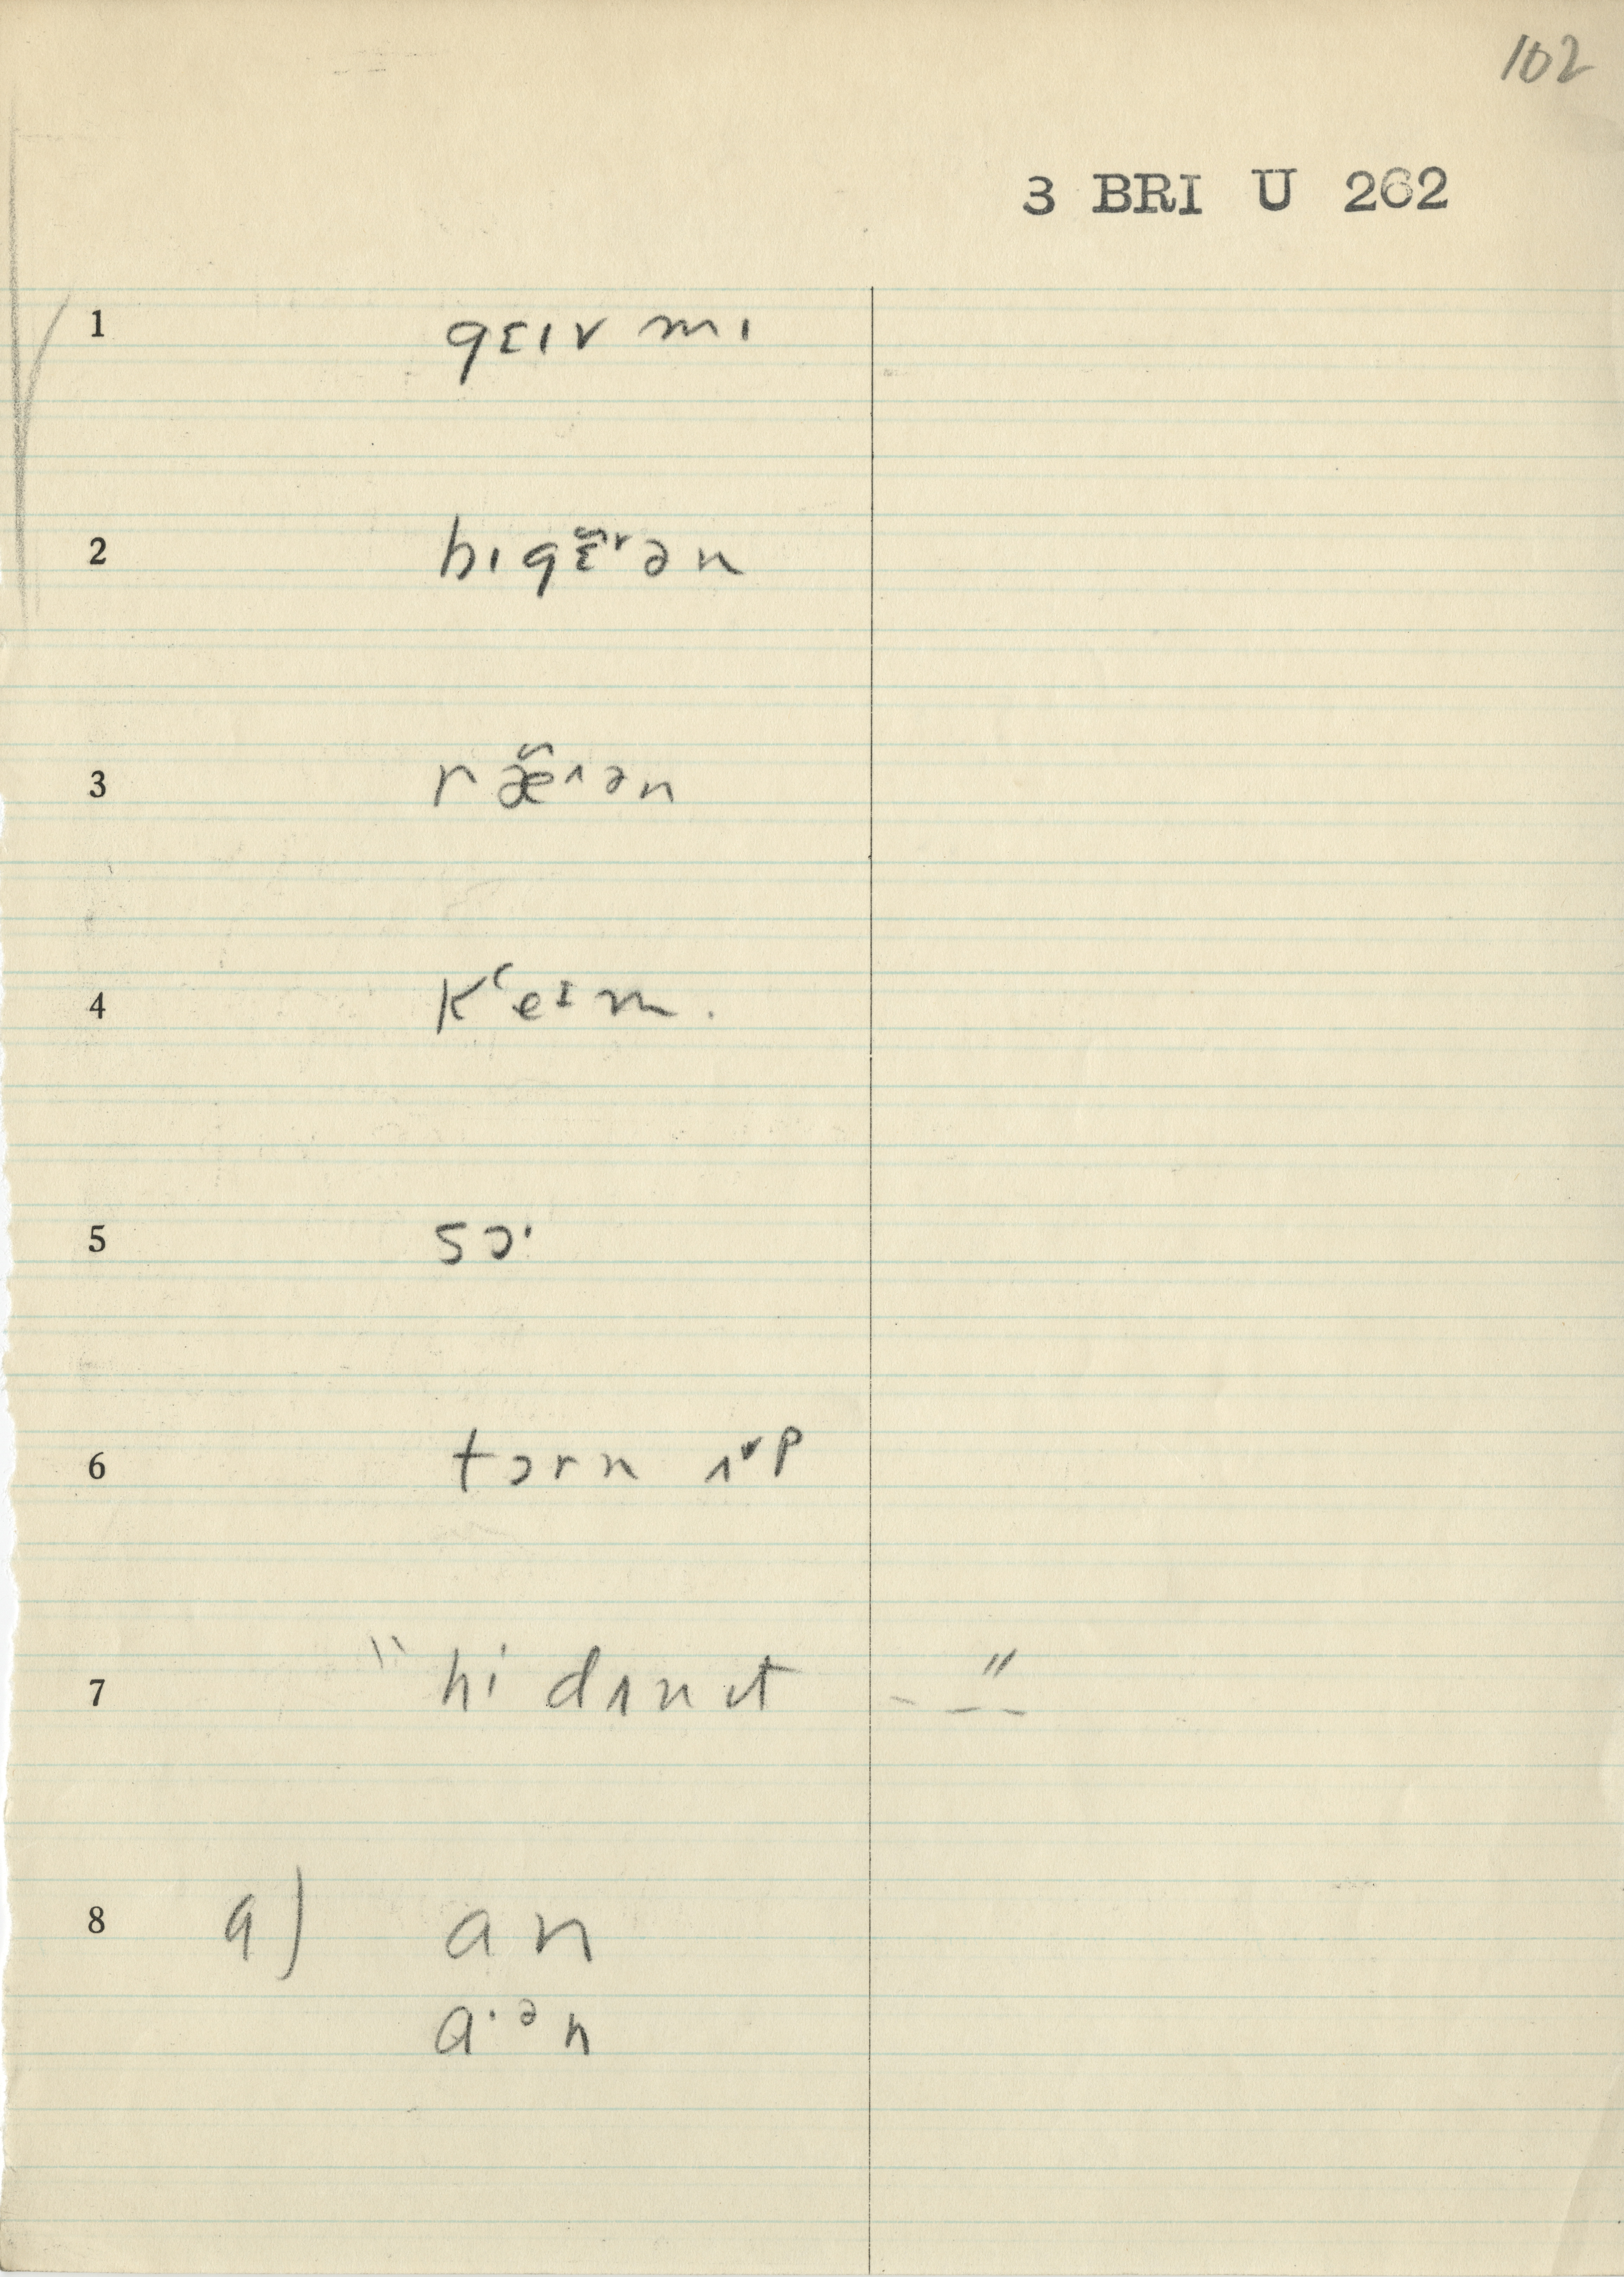 102
3 BRI U 262
1 gɛɪv mɪ
2 bɪgɛ̆ˠən
3 ræ̆ᴧən
4 kʻeɪm.
5 sɔ·
6 tɔrn ʌˠp
7 "hi dʌnɪt - — —"
8 a) an
a·ᵊn